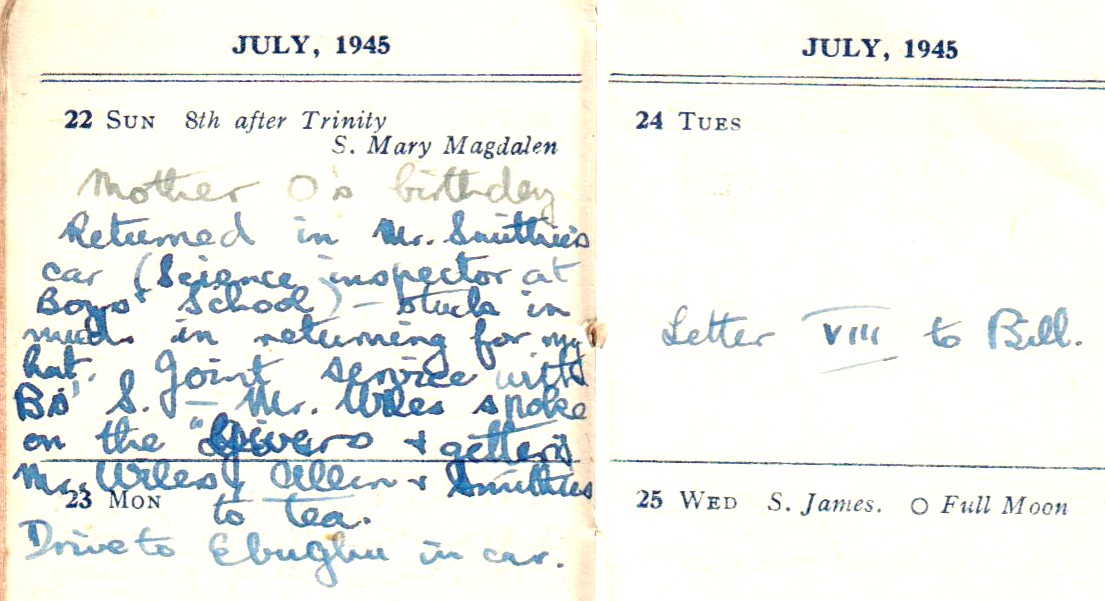 JULY, 1945
22 SUN 8th after Trinity
S. Mary Magdalen
Mother O's birthday
Returned in Mr. Smithies
car (Science inspector at
Boys' School) – stuck in
mud in returning for my
hat. Joint service with
Bs' S. – Mr. Wiles spoke
on the "Givers & getters
Mr. Wiles, Allen & Smithies
23 MON
to tea.
Drive to Ebughu in car.
JULY, 1945
24 TUES
Letter VIII to Bill.
25 WED S. James. O Full Moon